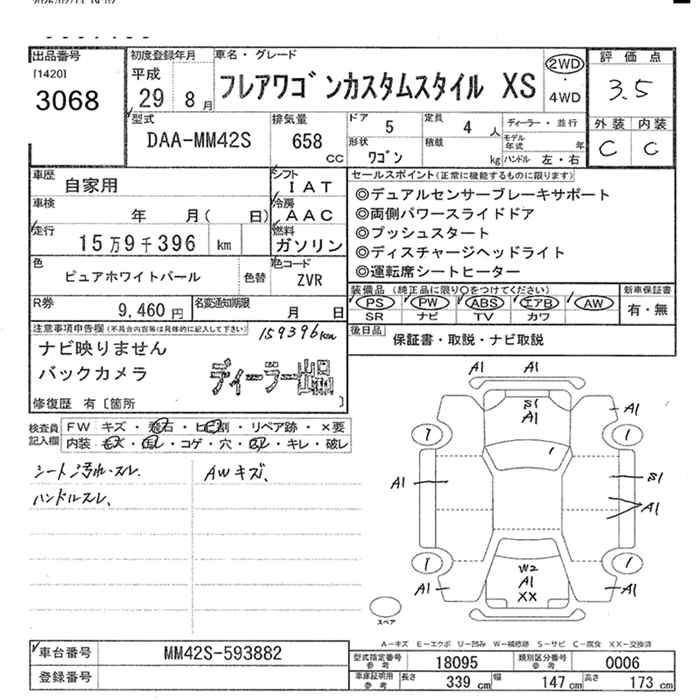 出品番号
[1420]
3068
初度登録年月
平成
29 8月
車名・グレード
フレアワゴンカスタムスタイル XS
2WD
・
4WD
評価点
3.5
外装 内装
C C
型式
DAA-MM42S
排気量
658
cc
ドア
5
定員
4 人
形状
ワゴン
積載
kg
ディーラー・並行
モデル年式 年
ハンドル 左・右
車歴
自家用
シフト
IAT
車検
年 月( 日)
冷房
AAC
走行
15万9千396 km
燃料
ガソリン
色
ピュアホワイトパール
色替
色コード
ZVR
R券
9,460 円
名変通知期限
月 日
セールスポイント(正常に機能するものに限ります)
◎デュアルセンサーブレーキサポート
◎両側パワースライドドア
◎プッシュスタート
◎ディスチャージヘッドライト
◎運転席シートヒーター
装備品(純正品に限り○をつけてください)
PS PW ABS エアB AW
SR ナビ TV カワ
新車保証書
有・無
後日品
保証書・取説・ナビ取説
注意事項申告欄(不具合内容等は具体的に記入して下さい)
159396km
ナビ映りません
バックカメラ
ディーラー出品
修復歴 有〔箇所 〕
検査員
記入欄
FW キズ・飛石・ヒビ割・リペア跡・×要
内装・キズ・汚レ・コゲ・穴・スレ・キレ・破レ
シート汚れ・スレ、
ハンドルスレ、
AWキズ、
A1
S1
A1
A1
1
1
1
A1
S1
A1
1
1
W2
A1
XX
A1
A1
スペア
A-キズ E-エクボ U-凹み W-補修跡 S-サビ C-腐食 XX-交換済
車台番号
MM42S-593882
登録番号
型式指定番号
参考
18095
類別区分番号
参考
0006
車庫証明用
参考
長さ
339 cm
幅
147 cm
高さ
173 cm